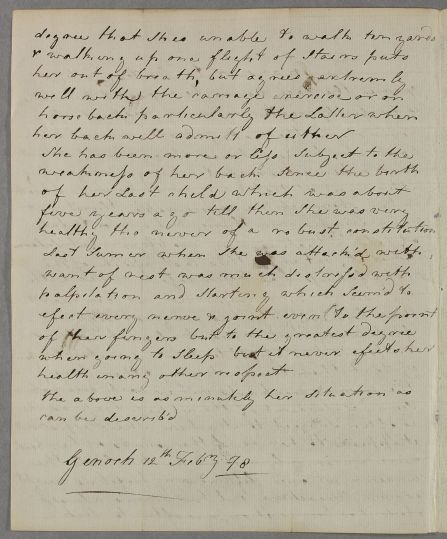 degree that shes unable to walk ten yards
& walking up one flight of Stairs puts
her out of breath, but agrees extremly
well with the carriage exercise or on
horseback particularly the Latter when
her back will admitt of either
She has been more or less Subject to the
weakness of her back Since the birth
of her Last child which was about
five years ago till then She was very
healthy tho never of a robust constitution
Last Sumer when She was attack'd with
want of rest was much distressed with
palpitation and Starting which Seem'd to
efect every nerve & joint even to the point
of her fingers but to the greatest degree
when going to Sleep but it never efects her
health in any other respect
the above is as minutely her Situation as
can be describ'd
Genoch 12th Febry 78